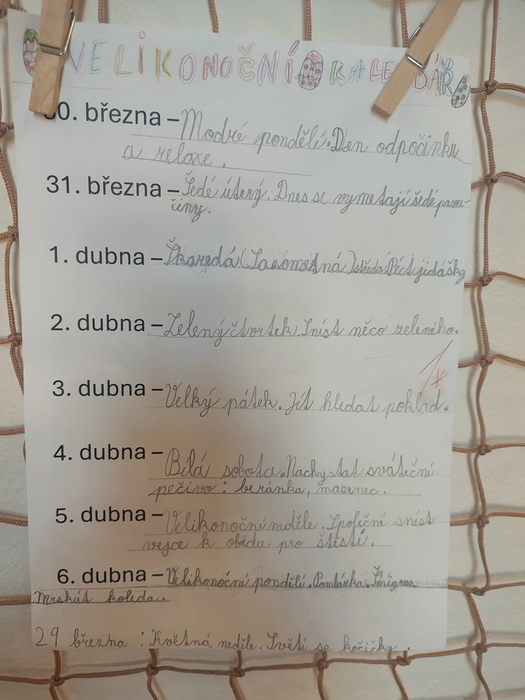 VELIKONOČNÍ KALENDÁŘ
30. března – Modré pondělí. Den odpočinku
a relaxe.
31. března – Šedé úterý. Dnes se vymetají šedé pavu-
činy.
1. dubna – Škaredá (Sazometná) středa. Péct jidášky
2. dubna – Zelený čtvrtek. Sníst něco zeleného.
1*
3. dubna – Velký pátek. Jít hledat poklad.
4. dubna – Bílá sobota. Nachystat sváteční
pečivo: beránka, mazanec.
5. dubna – Velikonoční neděle. Společně sníst
vejce k obědu pro štěstí.
6. dubna – Velikonoční pondělí. Pomlázka. Šmigrus
Mrskút koleda.
29 března : Květná neděle. Světí se kočičky.